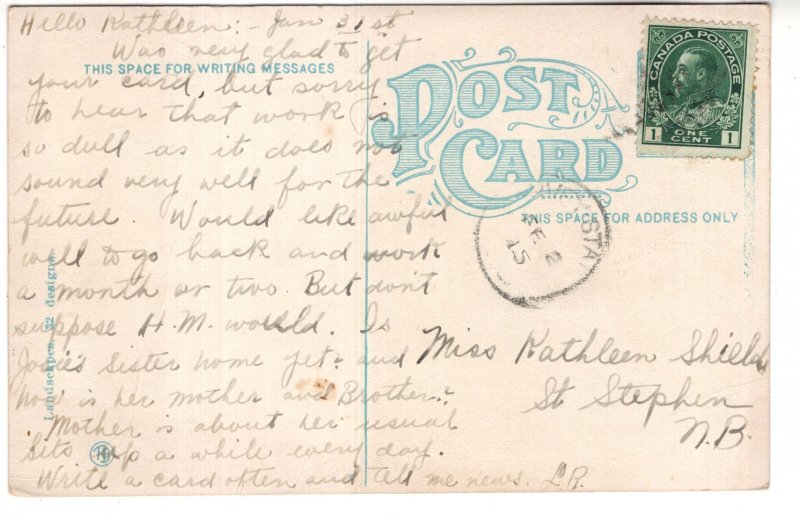 Hello Kathleen:- Jan 31st
Was very glad to get
THIS SPACE FOR WRITING MESSAGES
your card, but sorry
to hear that work is
so dull as it does not
sound very well for the
future. Would like awful
well to go back and work
a month or two. But don't
suppose H.M. would. Is
Josie's Sister home yet? and
how is her mother and Brother?
Mother is about her usual
sits up a while every day.
Write a card often and tell me news. L.R.
Landscapes, 32 designs.
POST
CARD
THIS SPACE FOR ADDRESS ONLY
CANADA POSTAGE
1 ONE CENT 1
STA
FE 2
15
Miss Kathleen Shield
St Stephen
N.B.